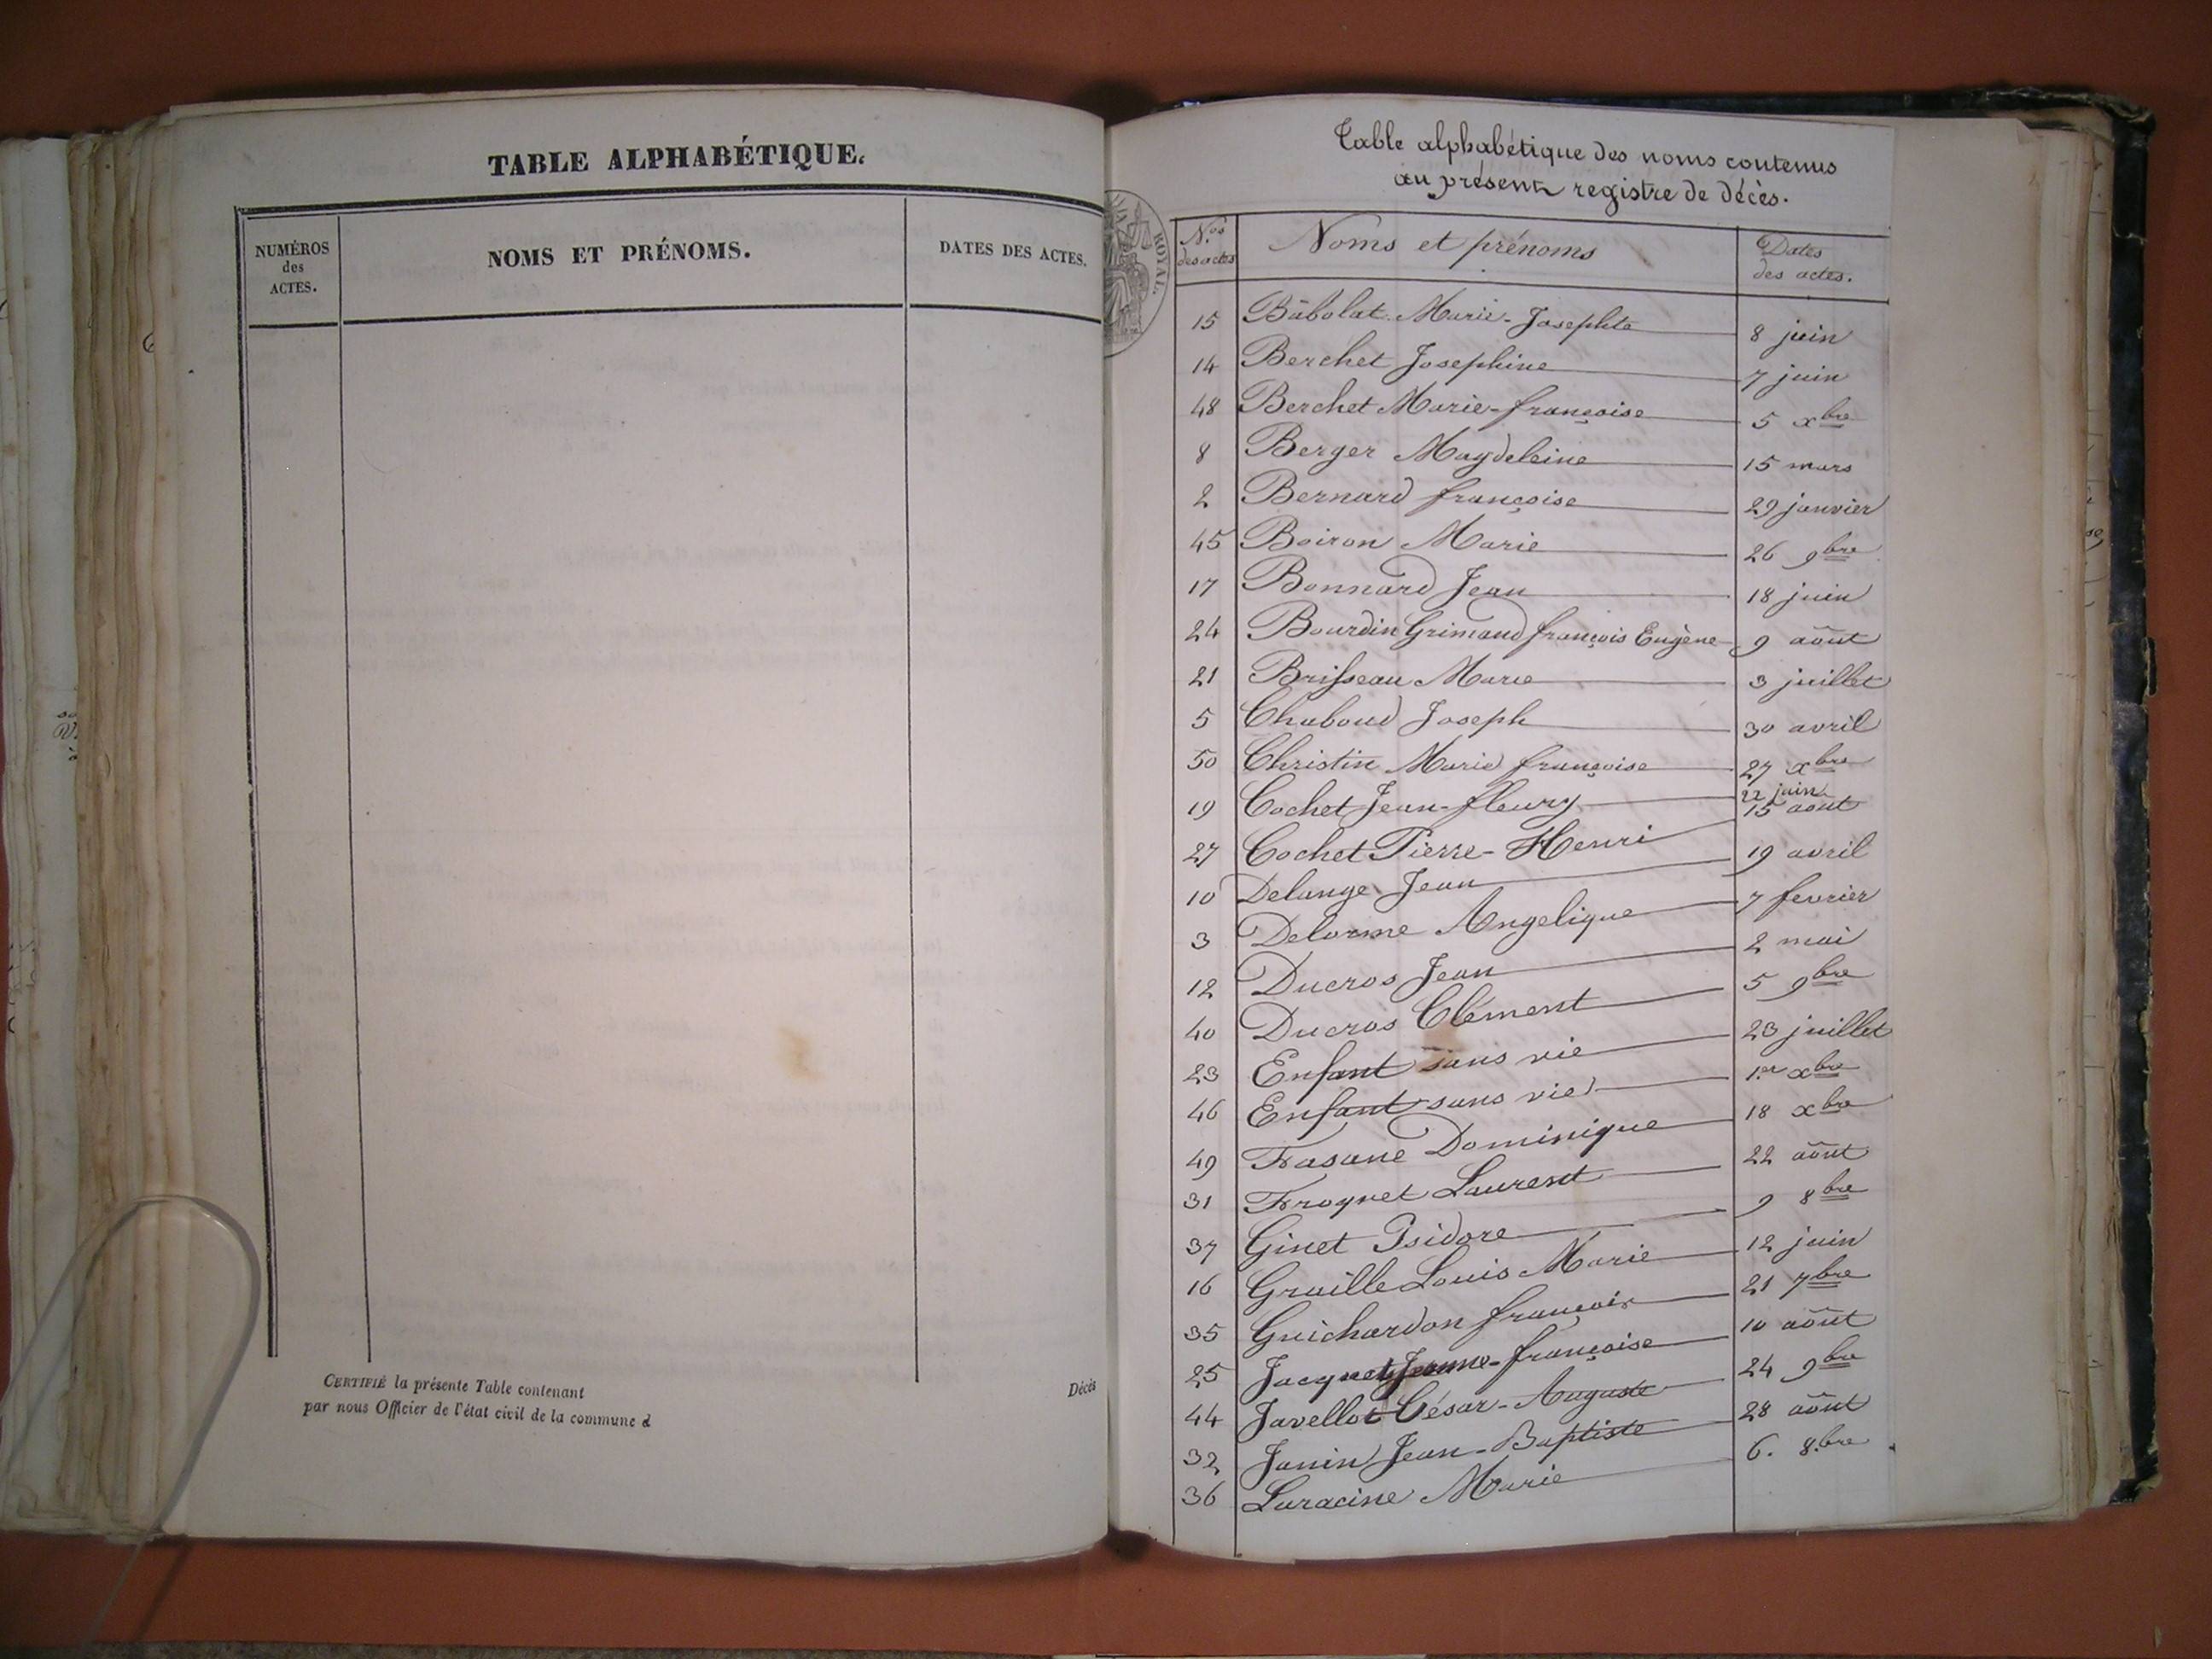 TABLE ALPHABÉTIQUE.
NUMÉROS
des
ACTES.
NOMS ET PRÉNOMS.
DATES DES ACTES.
CERTIFIÉ la présente Table contenant
par nous Officier de l'état civil de la commune d
Décès
ROYAL.
Table alphabétique des noms contenus
au présent registre de décès.
Nos des actes Noms et prénoms Dates des actes.
15 Babolat Marie-Josephte 8 juin
14 Berchet Josephine 7 juin
48 Berchet Marie-françoise 5 xbre
8 Berger Magdeleine 15 mars
2 Bernard françoise 29 janvier
45 Boiron Marie 26 9bre
17 Bonnard Jean 18 juin
24 Bourdin Grimaud françois Eugène 9 août
21 Brisseau Marie 3 juillet
5 Chaboud Joseph 30 avril
50 Christin Marie françoise 27 xbre
19 Cochet Jean-fleury 22 juin
27 Cochet Pierre-Henri 15 août
10 Delange Jean 19 avril
3 Delorme Angelique 7 fevrier
12 Ducros Jean 2 mai
40 Ducros Clément 5 9bre
23 Enfant sans vie 23 juillet
46 Enfant sans vie 1er xbre
49 Frasane Dominique 18 xbre
31 Froquet Laurent 22 août
37 Ginet Isidore 9 8bre
16 Graille Louis Marie 12 juin
35 Guichardon françois 21 7bre
25 Jacquet Jeanne-françoise 10 août
44 Javellot César-Auguste 24 9bre
32 Janin Jean-Baptiste 28 août
36 Laracine Marie 6. 8.bre